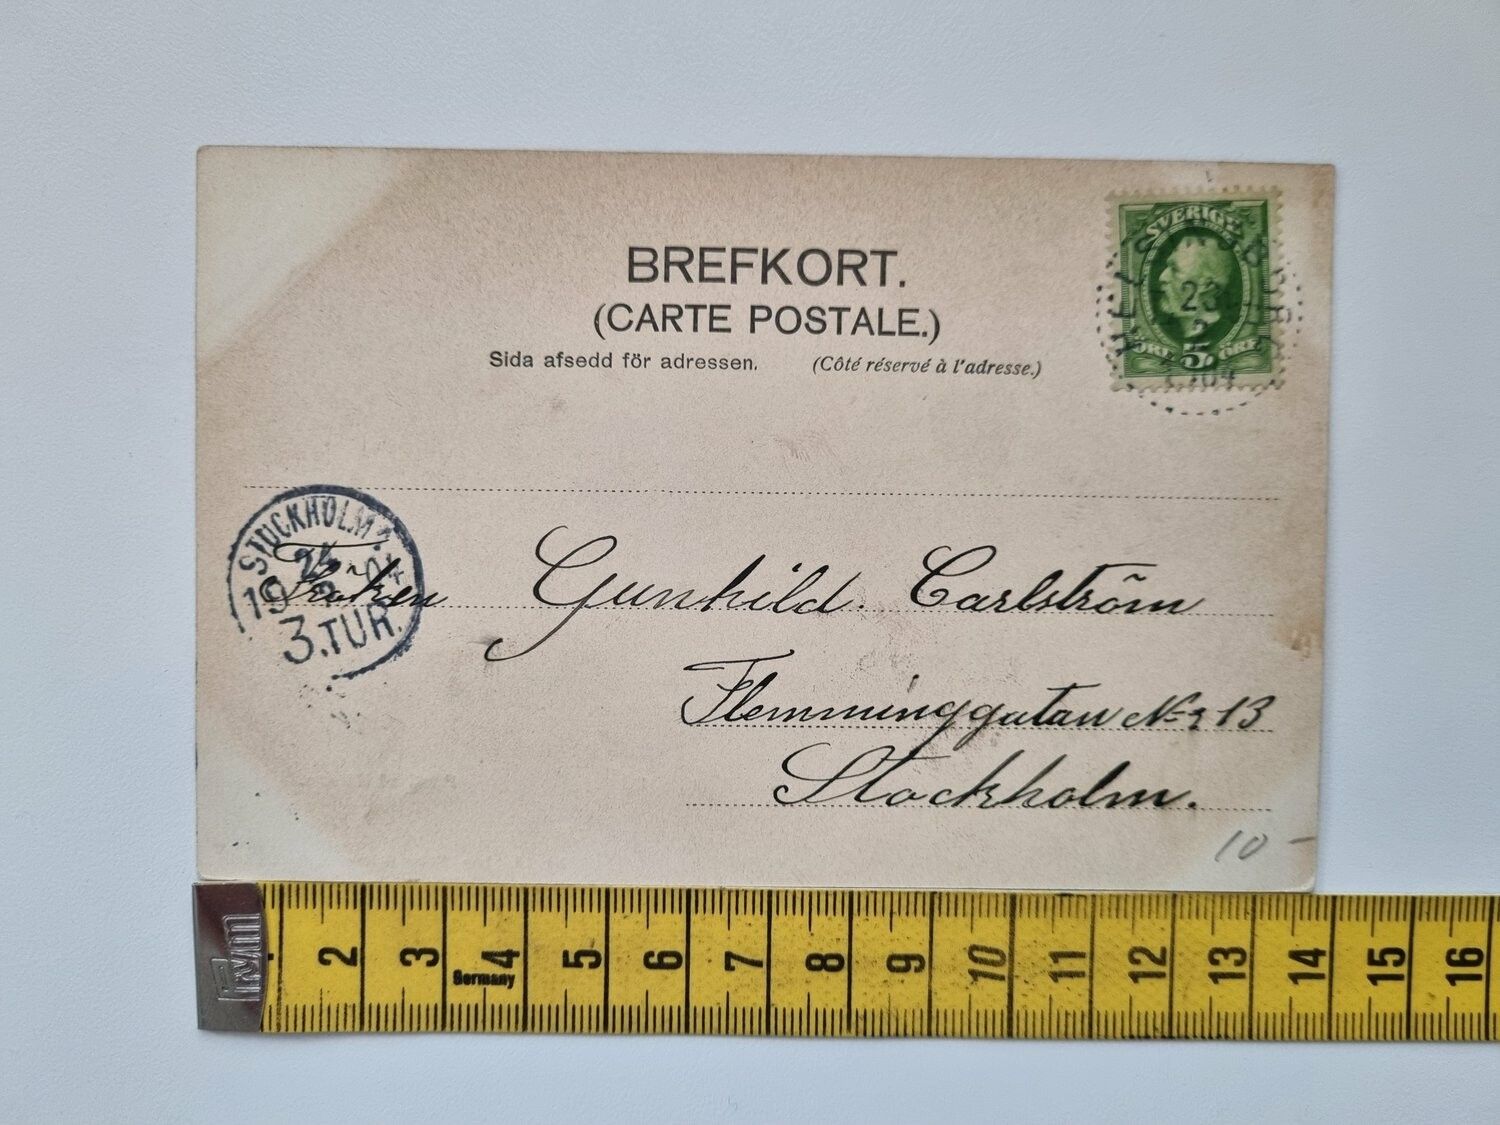 BREFKORT.
(CARTE POSTALE.)
Sida afsedd för adressen. (Côté réservé à l'adresse.)
SVERIGE
23
2
ÖRE 5 ÖRE
1904
STOCKHOLM
24
19 2 04
3.TUR.
Fröken Gunhild Carlström
Flemminggatan No 13
Stockholm.
10 -
prym
2 3 4 5 6 7 8 9 10 11 12 13 14 15 16
Germany